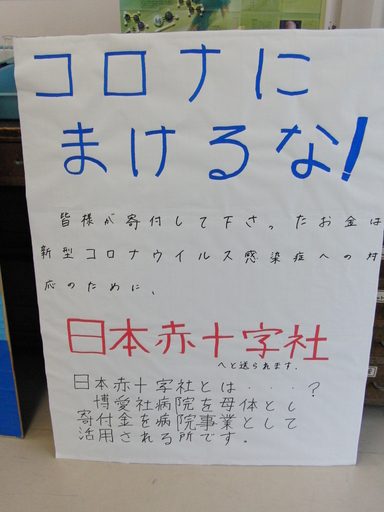 コロナに
まけるな!
皆様が寄付して下さったお金は
新型コロナウイルス感染症への対
応のために、
日本赤十字社
へと送られます.
日本赤十字社とは・・・・?
博愛社病院を母体とし
寄付金を病院事業として
活用される所です.